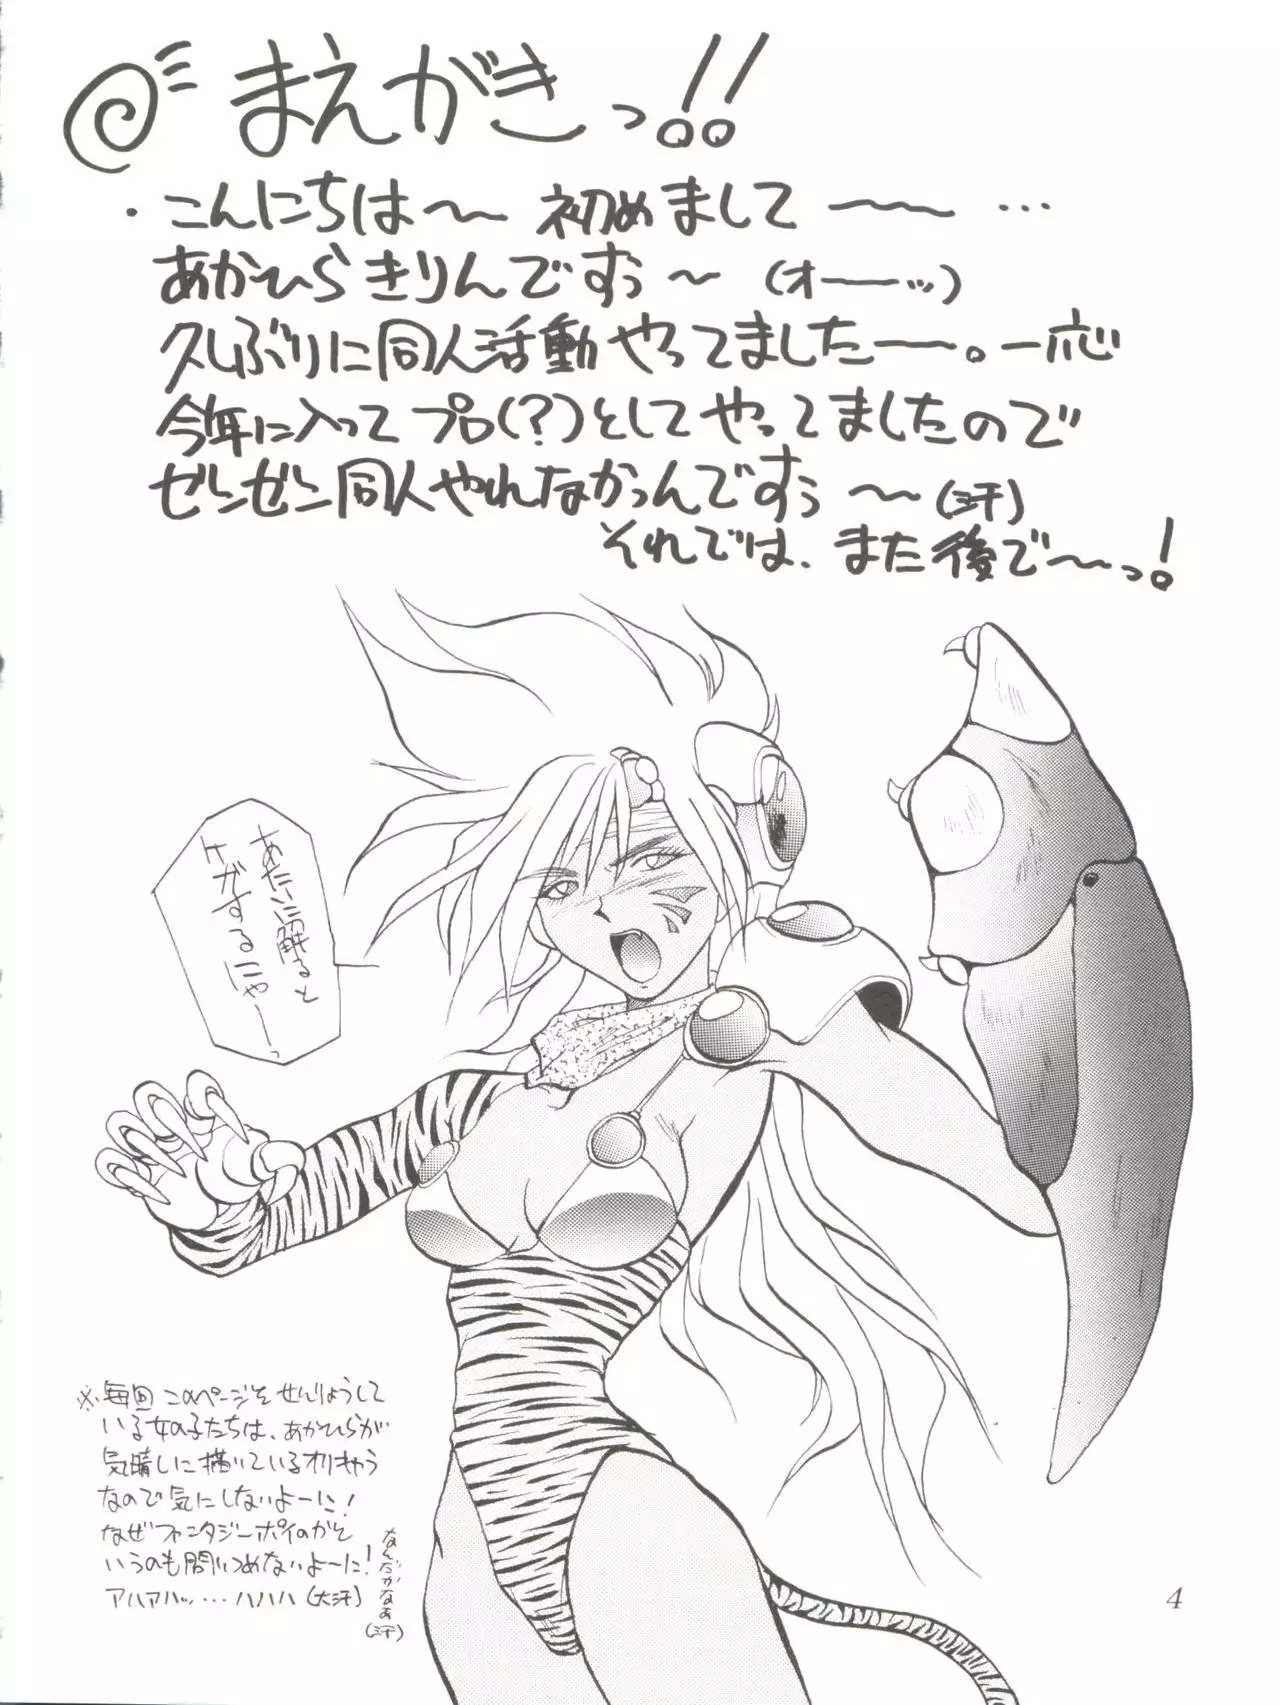 まえがきっ!!
・こんにちは〜〜 初めまして 〜〜 …
あかひらきりんですぅ〜 (オーーッ)
久しぶりに同人活動やってましたーー。一応
今年に入ってプロ(?)としてやってましたので
ゼンゼン同人やれなかったんですぅ〜〜(汗)
それでは、また後で〜〜っ!
あたいに触ると
ケガするにゃーっ
※毎回このページをせんりょうして
いる女の子たちは、あかひらが
気晴しに描いているオリキャラ
なので気にしないよーに!
なぜファンタジーポイのかと
いうのも問いつめないよーに!
アハアハッ・・・ハハハ(大汗)
なんだかなぁ
(汗)
4